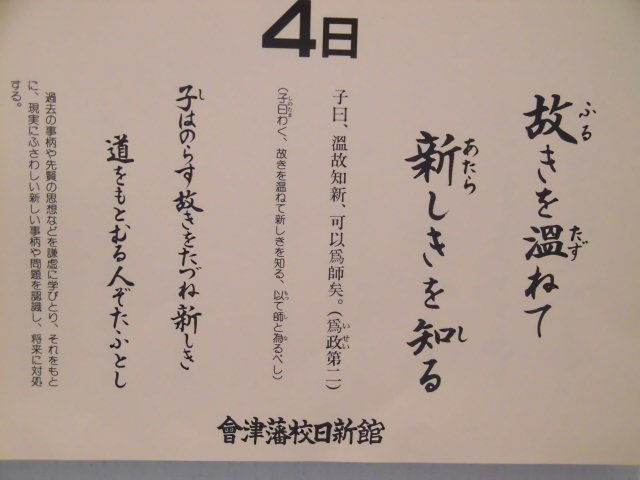 4日
故きを溫ねて
ふる
たず
新しきを知る
あたら
し
子曰、溫故知新、可以爲師矣。（爲政第二）
いせい
（子曰わく、故きを温ねて新しきを知る、以て師と為るべし）
しのたま
もっ
し
な
子はのらす故きをたづね新しき
し
道をもとむる人ぞたふとし
過去の事柄や先賢の思想などを謙虚に学びとり、それをもと
に、現実にふさわしい新しい事柄や問題を認識し、将来に対処
する。
會津藩校日新館